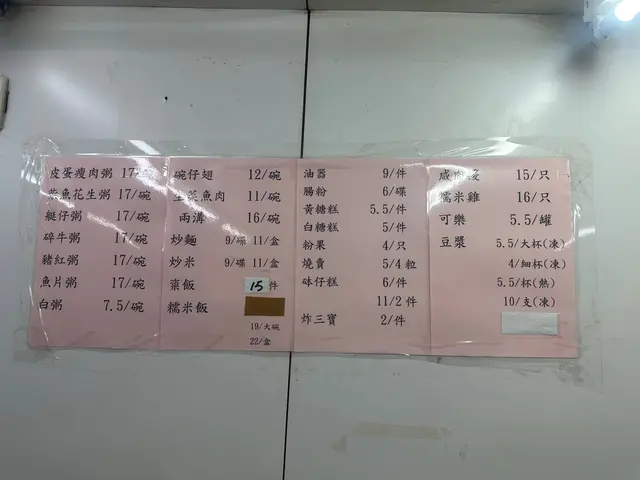 皮蛋瘦肉粥 17/碗
柴魚花生粥 17/碗
艇仔粥 17/碗
碎牛粥 17/碗
豬紅粥 17/碗
魚片粥 17/碗
白粥 7.5/碗
碗仔翅 12/碗
生菜魚肉 11/碗
兩溝 16/碗
炒麵 9/碟 11/盒
炒米 9/碟 11/盒
粢飯 15 件
糯米飯
19/大碗
22/盒
油器 9/件
腸粉 6/碟
黃糖糕 5.5/件
白糖糕 5/件
粉果 4/只
燒賣 5/4粒
砵仔糕 6/件
11/2件
炸三寶 2/件
咸肉粽 15/只
糯米雞 16/只
可樂 5.5/罐
豆漿 5.5/大杯(凍)
4/細杯(凍)
5.5/杯(熱)
10/支(凍)